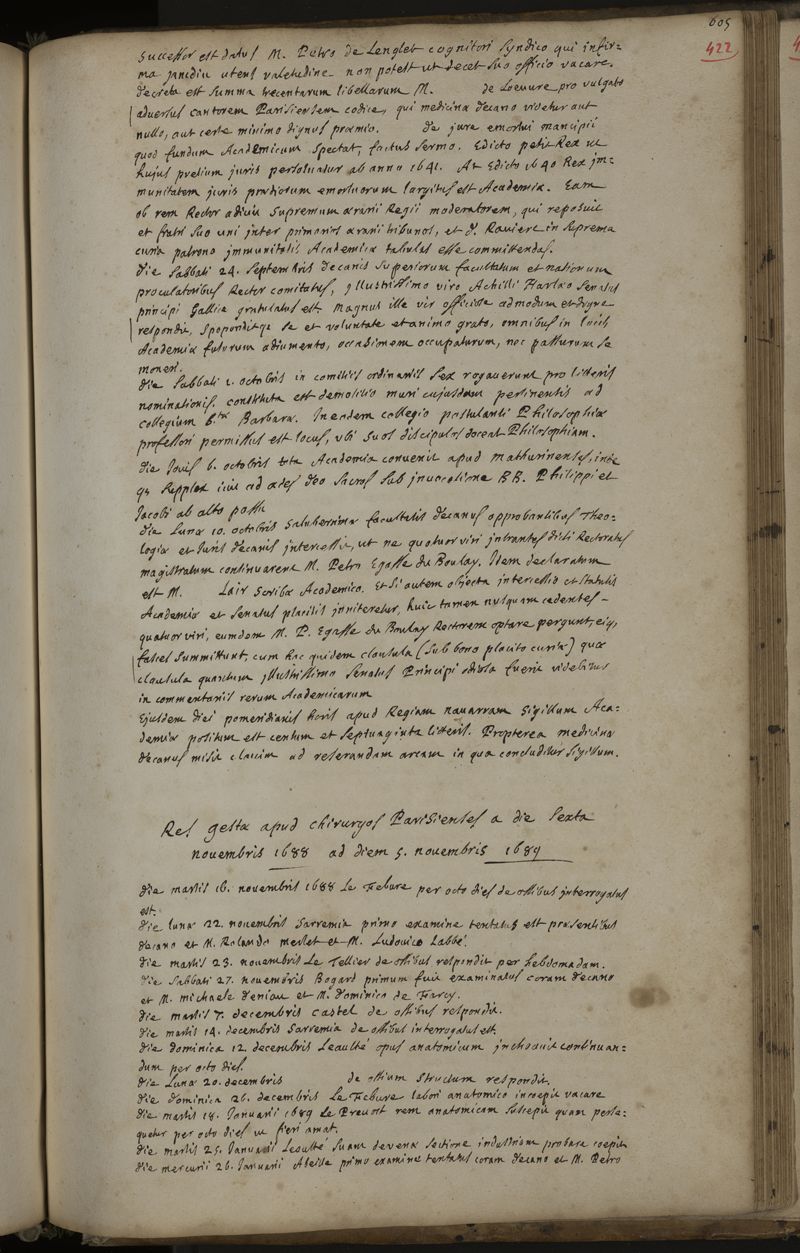 605
422
successor est datus M. Petro de Lenglet cognitori syndico qui infir=
ma jamdiu utens valetudine non potest ut decet suo officio vacare.
decreta est summa trecentarum libellarum M. de Loeuure pro vulgato
adversus cantorem Parisiensem codice, qui medicinæ decano videtur aut
nullo, aut certe minimo dignus præmio. de jure emortui mancipii
quod fundum Academicum spectat, factus sermo. Edicto petit Rex ut
hujus pretium juris persolvatur ab anno 1641. At Edicto 1640 Rex jm=
munitatem juris prædiorum emortuorum largitus est Academiæ. Eam
ob rem Rector adiuit supremum ærarii Regii moderatorem, qui reposuit
et fratri suo uni inter primarios ærarii tribunos, et d. Rouiere in suprema
curia patrono jmmunitatis Academicæ tabulas esse committendas.
die sabbati 24. septembris decanis superiorum facultatum et nationum
procuratoribus Rector comitatus, jllustrissimo viro Achilli Harlæo senatus
principi Galliæ gratulatus est. Magnus ille vir officiose admodum et digne
respondit, spoponditque se et voluntate et animo grato, omnibus in locis
Academiæ futurum adiumento, occasionem occupaturum, nec passurum se
moneri.
die sabbati 1. octobris in comitiis ordinariis sex rogauerunt pro litteris
nominationis. constituta est demolitio muri cujusdam pertinentis ad
collegium Stæ Barbaræ. In eodem collegio postulanti Philosophiæ
professori permissus est locus, ubi suos discipulos doceat Philosophiam.
die Jovis 6. octobris tota Academia convenit apud mathurinenses, inde
que supplex iuit ad ædes deo sacras sub jnvocatione BB. Philippi et
Jacobi ab alto passu
die Lunæ 10. octobris saluberrimæ facultatis decanus approbantibus Theo=
logiæ et Juris decanis jntercessit, ut ne quatuor viri jntrantes dicti Rectoratus
magistratum continuarent M. Petro Egasse du Boulay. Idem declaratum
est M. Lair scribæ Academico. Etsi autem objecta jntercessio et statutis
Academiæ et senatus placitis jnniteretur, huic tamen nusquam cedentes
quatuor viri, eumdem M. P. Egasse du Boulay Rectorem optare pergunt, eique
fasces summittunt, cum hac quidem clausula (sub bono placito curiæ) quæ
clausula quantum jllustrissimo senatus Principi odiosa fuerit videbitur
in commentariis rerum Academicarum
Ejusdem diei pomeridianis horis apud Reginam navarram sigillum Aca=
demiæ positum est centum et septuaginta litteris. Propterea medicinæ
decanus misit clavim ad reserandam arcam in qua concluditur sigillum.
Res gestæ apud chirurgos Parisienses a die sexta
novembris 1688 ad diem 5. novembris 1689
die martis 16. novembris 1688 Le Febure per octo dies de ossibus jnterrogatus
est.
die lunæ 22. novembris Sarremia primo examine tentatus est præsentibus
decano et M. Rolando merlet et M. Ludovico Labbé.
die martis 23. novembris Le Tellier de ossibus respondit per hebdomadam.
die sabbati 27. novembris Bogard primum fuit examinatus coram decano
et M. michaele deniau et M. dominico de Farcy.
die martis 7. decembris castel de ossibus respondit.
die martis 14. decembris Sarremia de ossibus interrogatus est.
die dominica 12. decembris Leaulté opus anatomicum jnchoavit continuan=
dum per octo dies.
die Lunæ 20. decembris de ossium structura respondit.
die dominica 26. decembris Le Febure labori anatomico incœpit vacare
die martis 18. Januarii 1689 Le Preuost rem anatomicam suscepit quam perse=
quetur per octo dies ut fieri amat.
die martis 25. Januarii Leaulté suam de venæ sectione industriam probare cœpit
die mercurii 26. Januarii Aleille primo examine tentatus coram decano et M. Petro